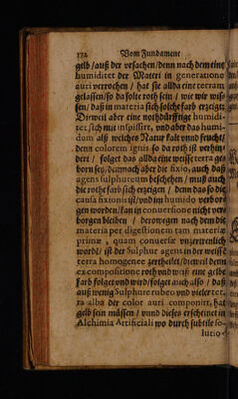 172 Vom Fundament
gelb / auß der vrsachen / denn nach dem eine
humiditet der Materi in generatione
auri verrochen / hat sie allda eine terram
gelassen / so da solte roth sein / wie wir wis-
sen / daß in materia sich solche farb erzeigt
Dieweil aber eine nothdürfftige humidi-
tet sich mit inspissirt, vnd aber das humi-
dum alß welches Natur kalt vnnd feucht /
denn colorem ignis so da roth ist verhin-
dert / folget das allda eine weisse terra ge-
born sey / demnach aber die fixio, auch daß
agens sulphureum beschehen / muß auch
die rothe farb sich erzeigen / denn das so die
causa fixionis ist / vnd im humido verbor-
gen worden / kan in conuersione nicht ver-
borgen bleiben / derowegen nach dem die
materia per digestionem tam materiæ
primæ, quam conuersæ vnzertrenlich
word / ist der Sulphur agens in der weisse
terra homogenee zertheilet / dieweil denn
ex compositione roth vnd weiß eine gelbe
farb folget vnd wird / folget auch also / daß
auß wenig Sulphure rubeo vnd vieler ter-
ra alba der color auri componirt, hat
gelb sein müssen / vnnd dieses erscheinet in
Alchimia Artificiali wo durch subtile so-
lutio-